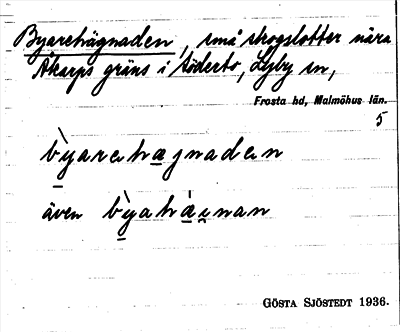 Byarehägnaden, små skogslotter nära
Åkarps gräns i söderto, Lyby sn,
Frosta hd, Malmöhus län.
5
b̀yarehagnaden
även b̀yahàinan
GÖSTA SJÖSTEDT 1936.